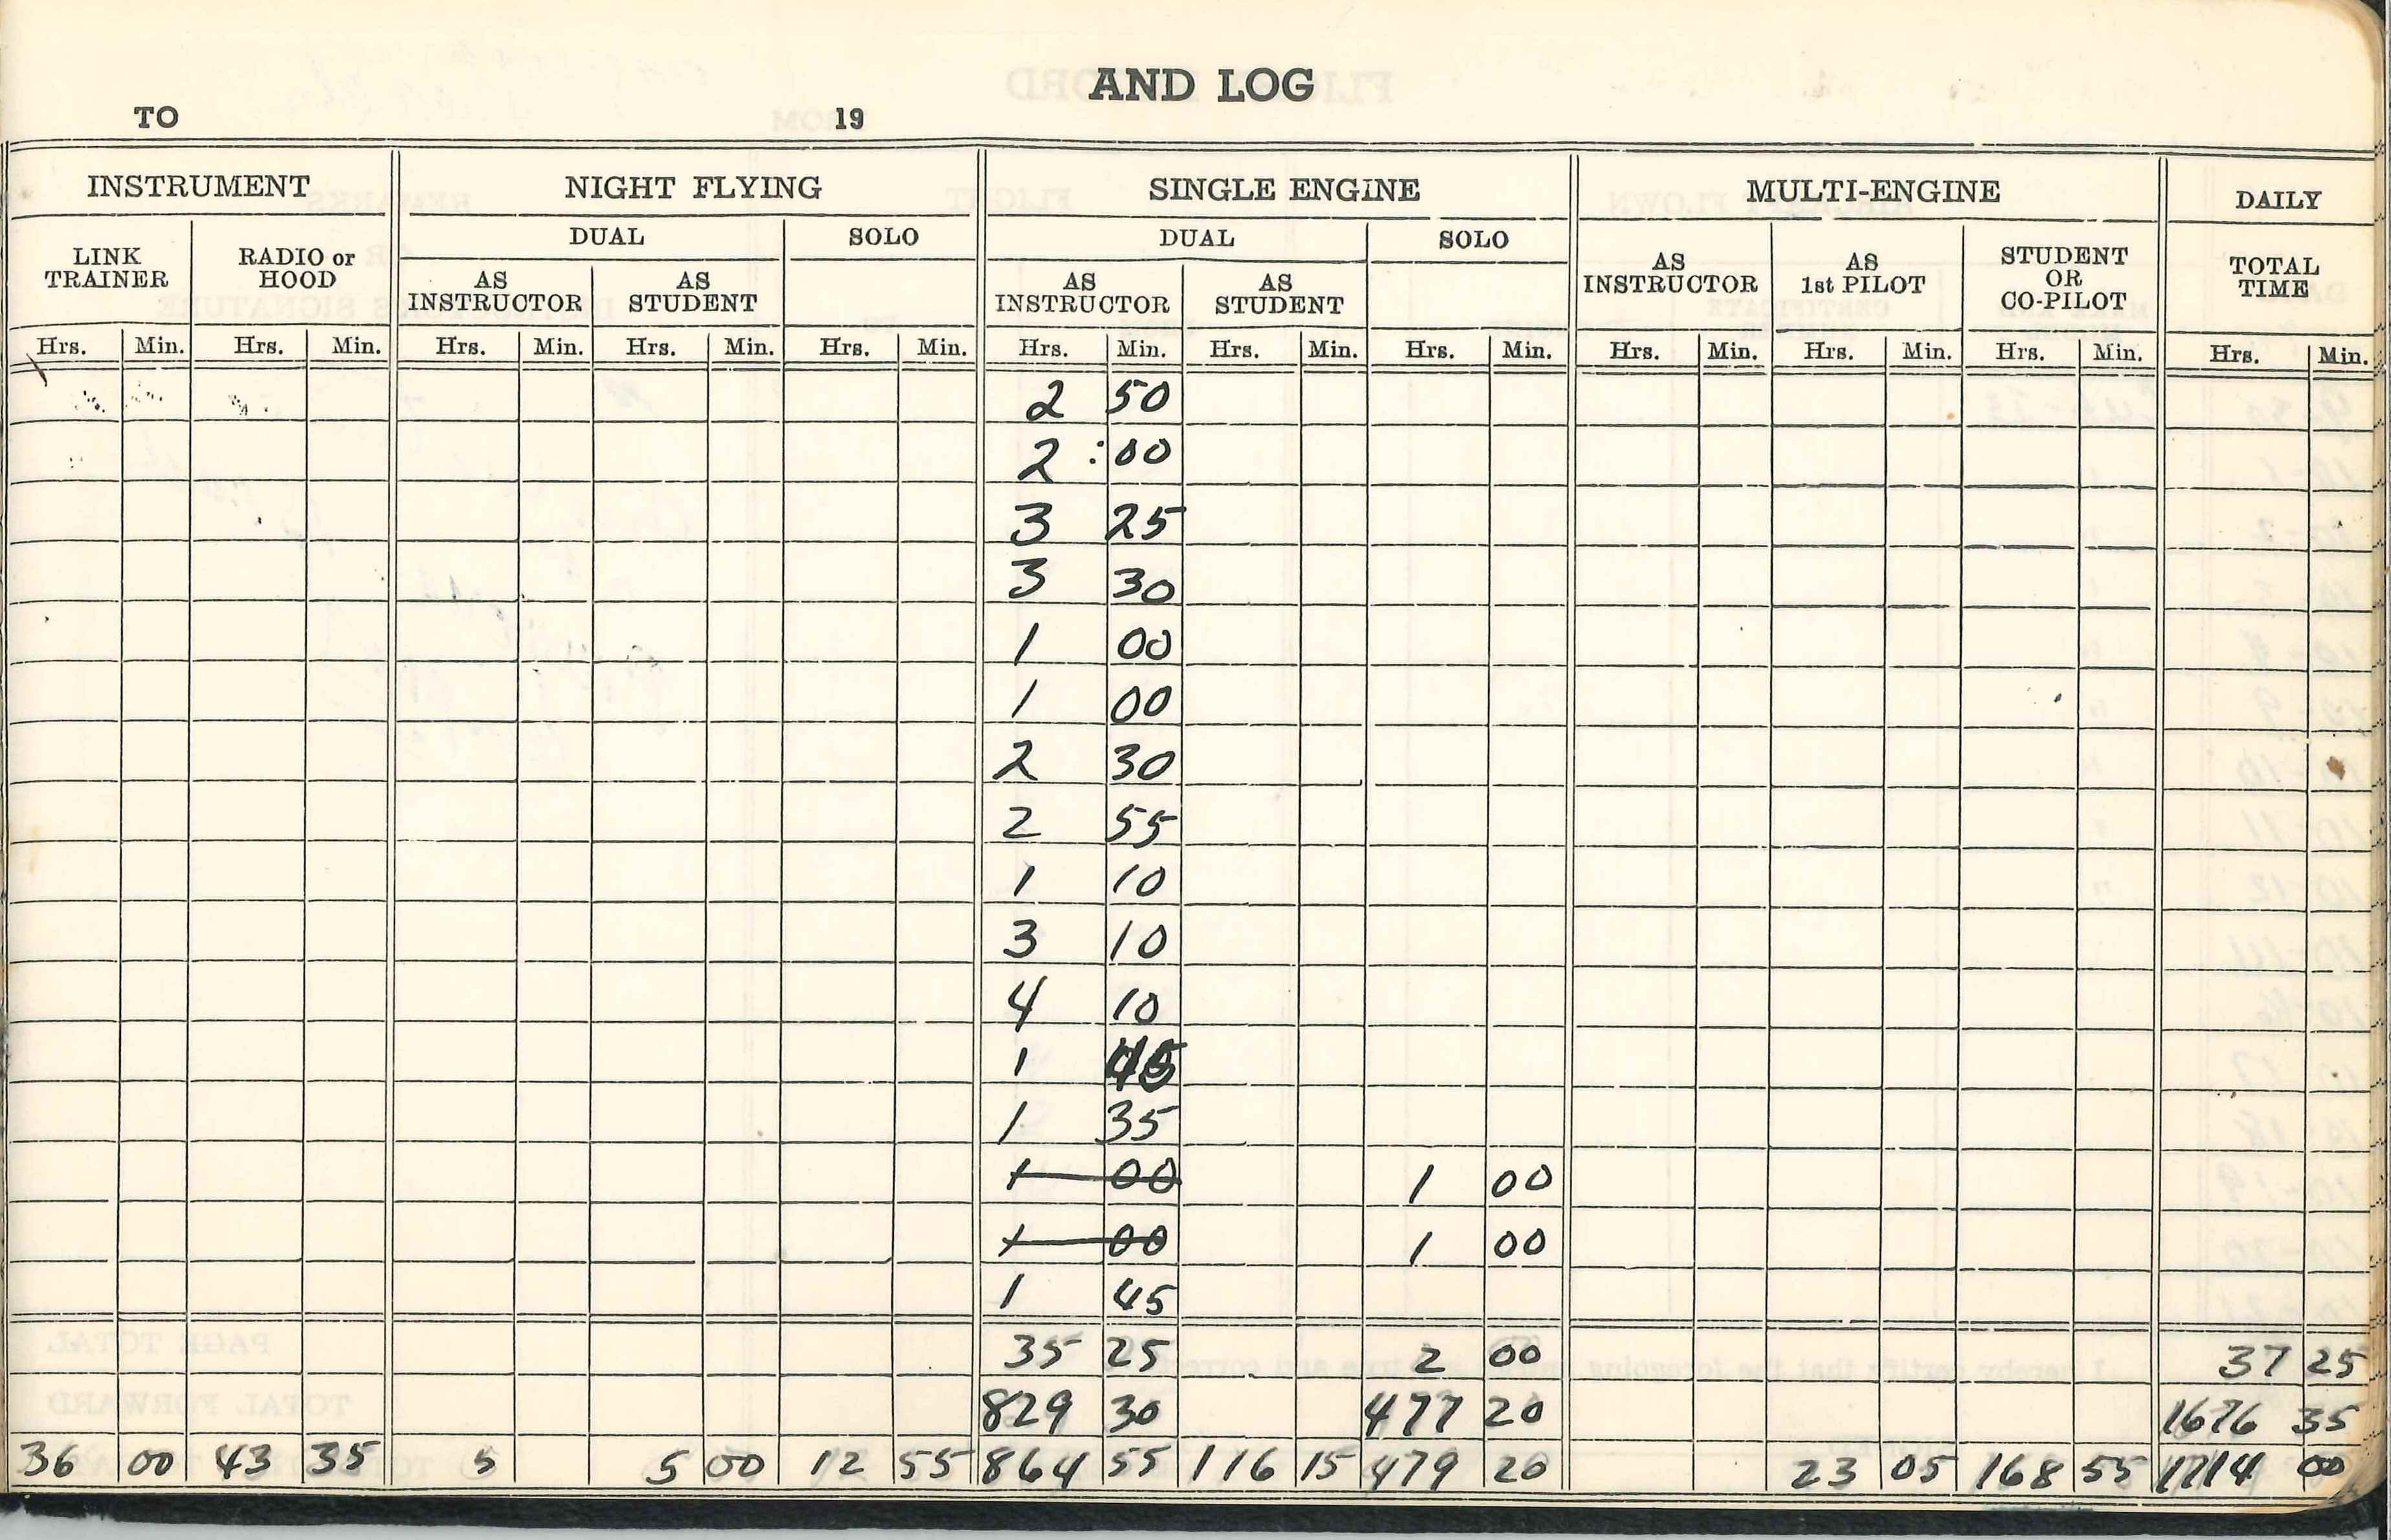 AND LOG
TO 19
INSTRUMENT NIGHT FLYING SINGLE ENGINE MULTI-ENGINE DAILY
DUAL SOLO DUAL SOLO
LINK TRAINER RADIO or HOOD AS INSTRUCTOR AS STUDENT AS INSTRUCTOR AS STUDENT AS INSTRUCTOR AS 1st PILOT STUDENT OR CO-PILOT TOTAL TIME
Hrs. Min. Hrs. Min. Hrs. Min. Hrs. Min. Hrs. Min. Hrs. Min. Hrs. Min. Hrs. Min. Hrs. Min. Hrs. Min. Hrs. Min. Hrs. Min.
2 50
2 :00
3 25
3 30
1 00
1 00
2 30
2 55
1 10
3 10
4 10
1 45
1 35
1 00 1 00
1 00 1 00
1 45
35 25 2 00 37 25
829 30 477 20 1676 35
36 00 43 35 5 5 00 12 55 864 55 116 15 479 20 23 05 168 55 1714 00